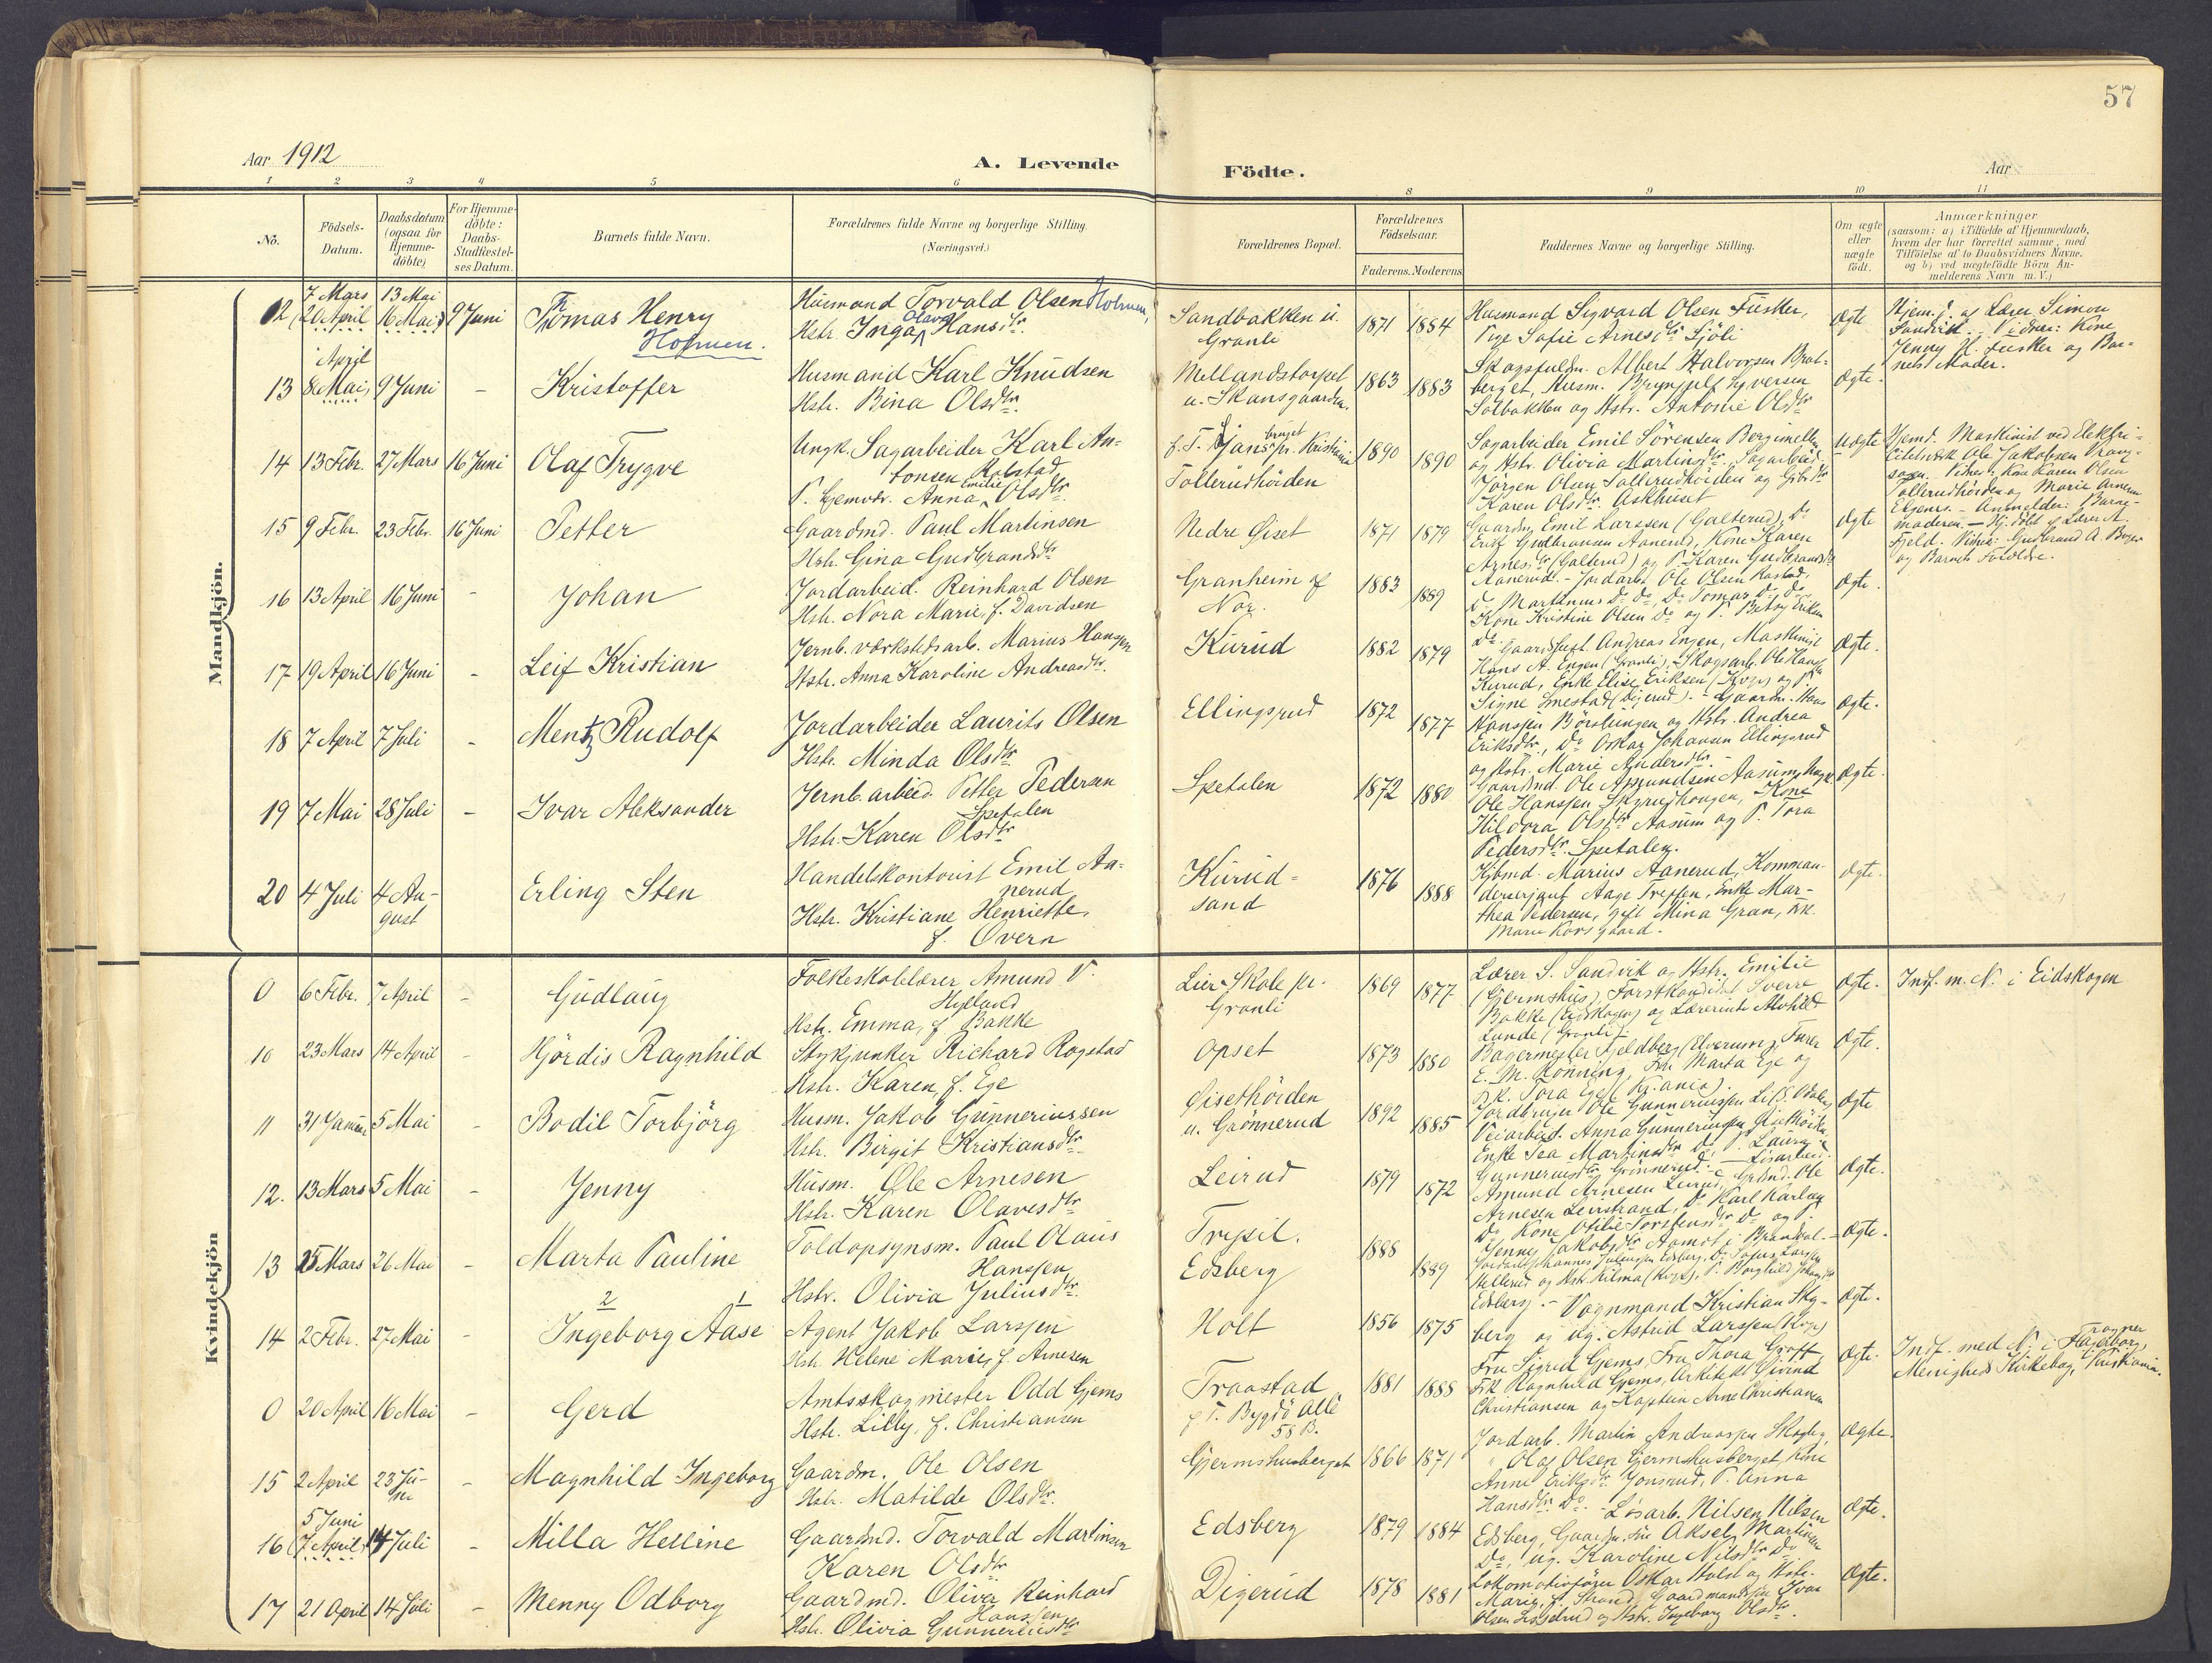 57
Aar 1912
A. Levende Födte.
Aar
1 2 3 4 5 6 8 9 10 11
No.
Födsels-Datum.
Daabsdatum (ogsaa for Hjemmedöbte)
For Hjemmedöbte: Daabs-Stadfæstelses Datum.
Barnets fulde Navn.
Forældrenes fulde Navne og borgerlige Stilling. (Næringsvei.)
Forældrenes Bopæl.
Forældrenes Födselsaar.
Faderens. Moderens.
Faddernes Navne og borgerlige Stilling.
Om ægte eller uægte födt.
Anmærkninger
(saasom: a) i Tilfælde af Hjemmedaab,
hvem der har forrettet samme, med
Tilföielse af to Daabsvidners Navne.
og b) ved uægtefödte Börn Anmelderens Navn m. V.)
Mandkjön.
12 7 Mars (20 April) 13 Mai (16 Mai) 9 Juni Thomas Henry Holmen.
Husmand Torvald Olsen Holmen,
Hstr. Inga Olava Hansdtr.
Sandbakken u. Granli 1871 1884
Husmand Sigvard Olsen Fusker,
Pige Sofie Arnesdtr Sjöli
Ægte
Hjem.d. af Lærer Simon
Sandvik. Vidner: Kone
Jenny H. Fusker og Barnets Moder.
13 April 8 Mai 9 Juni - Kristoffer
Husmand Karl Knudsen
Hstr. Bina Olsdtr.
Mellandstorpet u. Skansgaarden. 1863 1883
Skogsfuldm. Albert Halvorsen Bratberget, Husm. Brynjulf Syversen
Solbakken og Hstr. Antonie Olsdtr
Ægte.
14 13 Febr. 27 Mars 16 Juni Olaf Trygve
Ungk. Sagarbeider Karl Antonsen Rolstad
P. Gjemvtr. Anna Emilie Olsdtr.
Kristiania
Tollerudhöiden 1890 1890
Sagarbeider Emil Sörensen Bergimellem
og Hstr. Olivia Martinsdtr. Sagarbeid.
Jörgen Olsen Tollerudhöiden og
Karen Olsdtr. Askhuset
Uægte
Hjemd. Maskinist ved Elektricitetsverk Ole Jakobsen
Vidner: Kone Karen Olsen
Tollerudhöiden og Marie Arnesen
Anmelder: Barnemoderen. - Hj. döbt af Lærer A.
Fjeld. Vidner: Gudbrand A.
og Barnets Forældre.
15 9 Febr. 23 Febr. 16 Juni Petter
Gaardmd. Paul Martinsen
Hstr. Gina Gudbrandsdtr
Nedre Öiset 1871 1879
Gaardm. Emil Larssen (Galterud), Do
Erik Gudbransen Aanerud, Kone Karen
Arnesdtr (Galterud) og P. Karen Gudbrandsdtr
Aanerud.
Ægte
16 13 April 16 Juni - Johan
Jordarbeid. Reinhard Olsen
Hstr. Nora Marie, f. Davidsen
Granheim af Nor. 1883 1889
Jordarb. Ole Olsen Rastad,
Do Martinius Do Do, Do Tomas Do Do,
Kone Kristine Olsen Do og P. Betsy Eriksen
Do.
Ægte.
17 19 April 16 Juni - Leif Kristian
Jernb. værkstedsarb. Marius Hanssen
Hstr. Anna Karoline Andreasdtr.
Kurud 1882 1879
Andreas Engen, Maskinist
Hans A. Engen (Granli), Skogsarb. Ole Hanssen
Kurud, Enke Elise Eriksen og P.
Signe Smestad (Digerud).
Ægte.
18 7 April 7 Juli - Mentz Rudolf
Jordarbeider Laurits Olsen
Hstr. Minda Olsdtr
Ellingsrud 1872 1877
Gaardm. Hans
Hanssen Börslungen og Hstr. Andrea
Eriksdtr., Do Oskar Johansen Ellingsrud
og Hstr. Marie Andersdtr.
Ægte.
19 7 Mai 28 Juli - Ivar Aleksander
Jernb. arbeid. Petter Pedersen Spetalen
Hstr. Karen Olsdtr
Spetalen 1872 1880
Gaardmd. Ole Amundsen Aasum, Ungk.
Ole Hanssen Skyrudhougen, Kone
Hildora Olsdtr Aasum og P. Tora
Pedersdtr. Spetalen.
Ægte.
20 4 Juli 4 August Erling Sten
Handelskontorist Emil Aanerud
Hstr. Kristiane Henriette,
f. Overn
Kurudsand 1876 1888
Kjbmd. Marius Aanerud, Kommandersersjant Aage Treffen, Enke Marthea Pedersen, gift Mina Gran, Frk.
Marie Korsgaard.
Ægte.
Kvindekjön
0 6 Febr. 7 April - Gudlaug
Folkeskolelærer Amund V. Hylland
Hstr. Emma, f. Bakke
Lier Skole pr. Granli 1869 1877
Lærer S. Sandvik og Hstr. Emilie
(Gjermshus), Forstkandidat Sverre
Bakke (Eidskogen) og Lærerinde Alvhild
Lunde (Granli).
Ægte. Indf. m. N. i Eidskogen
10 23 Mars 14 April - Hjördis Ragnhild
Stykjunker Richard Rogstad
Hstr. Karen, f. Ege
Opset 1873 1880
Bagermester Kjeldberg (Elverum), Furer
E. M. Rönning, Fru Marta Ege og
Frk. Tora Ege (Kr.ania).
Ægte.
11 31 Januar 5 Mai - Bodil Torbjörg
Husm. Jakob Gunneriussen
Hstr. Birgit Kristiansdtr.
Öisethöiden u. Grönnerud 1892 1885
Jordbruger Ole Gunneriussen Li (S. Odalen)
Veiarbeid. Anna Gunneriussen Öisethöiden
Enke Tea Martinsdtr Do, P. Laura
Gunneriusdtr Grönnerud.
Ægte
12. 13 Mars 5 Mai - Jenny
Husm. Ole Arnesen
Hstr. Karen Olavesdtr
Leirud 1879 1872
Lösarbeid.
Amund Arnesen Leirud, Grdmd. Ole
Arnesen Leirstrand, Do Karl Karlsen
Do Kone Otilie Torstensdtr Do og P.
Jenny Jakobsdtr Aamot i Brandval.
Ægte.
13 25 Mars 26 Mai - Marta Pauline
Toldopsynsm. Paul Olaus Hanssen
Hstr. Olivia Juliusdtr.
Trysil. Edsberg 1888 1889
Johannes Juliussen Edsberg, Do Sofus Larssen
og Hstr. Hilma, P. Borghild
Edsberg.
Ægte.
14 2 Febr. 27 Mai - 2 1 Ingeborg Aase
Agent Jakob Larssen
Hstr. Helene Marie, f. Arnesen
Holt 1856 1875
Vognmand Kristian Skyberg og Ug. Astrid Larssen (Kongsv.)
Ægte.
0 20 April 16 Mai - Gerd
Amtsskogmester Odd Gjems
Hstr. Lilly, f. Christiansen
Traastad p. T. Bygdö Allé 58 B. 1881 1888
Fru Sigrid Gjems, Fru Thora Gröfft,
Frk Ragnhild Gjems, Arkitekt Eivind
Christiansen og Kaptein Arne Christiansen
Ægte. Indf. med N. i Frogner
Menigheds Kirkebog, Kristiania.
15 2 April 23 Juni - Magnhild Ingeborg
Gaardm. Ole Olsen
Hstr. Matilde Olsdtr.
Gjermshusberget 1866 1871
Jordarb. Martin Andreassen Skogly,
" Olaf Olsen Gjermshusberget, Kone
Anne Eriksdtr Jonsrud, P. Anna
Hansdtr. Do.
Ægte.
16 5 Juni (7 April) 14 Juli - Milla Helline
Gaardmd. Torvald Martinsen
Karen Olsdtr
Edsberg 1879 1884
Lösarb. Nilsen Nilsen
Edsberg, Gaardm. sön Aksel Martinsen
Do, Ug. Karoline Nilsdtr Do
Ægte.
17 21 April 14 Juli - Menny Odborg
Gaardmd. Oliver Reinhard Hanssen
Hstr. Olivia Gunneriusdtr
Digerud 1878 1881
Lokomotivförer Oskar Holst og Hstr.
Marie, f. Strand, Gaardmandssön Ivar
Olsen og Hstr. Ingeborg Olsdtr.
Ægte.